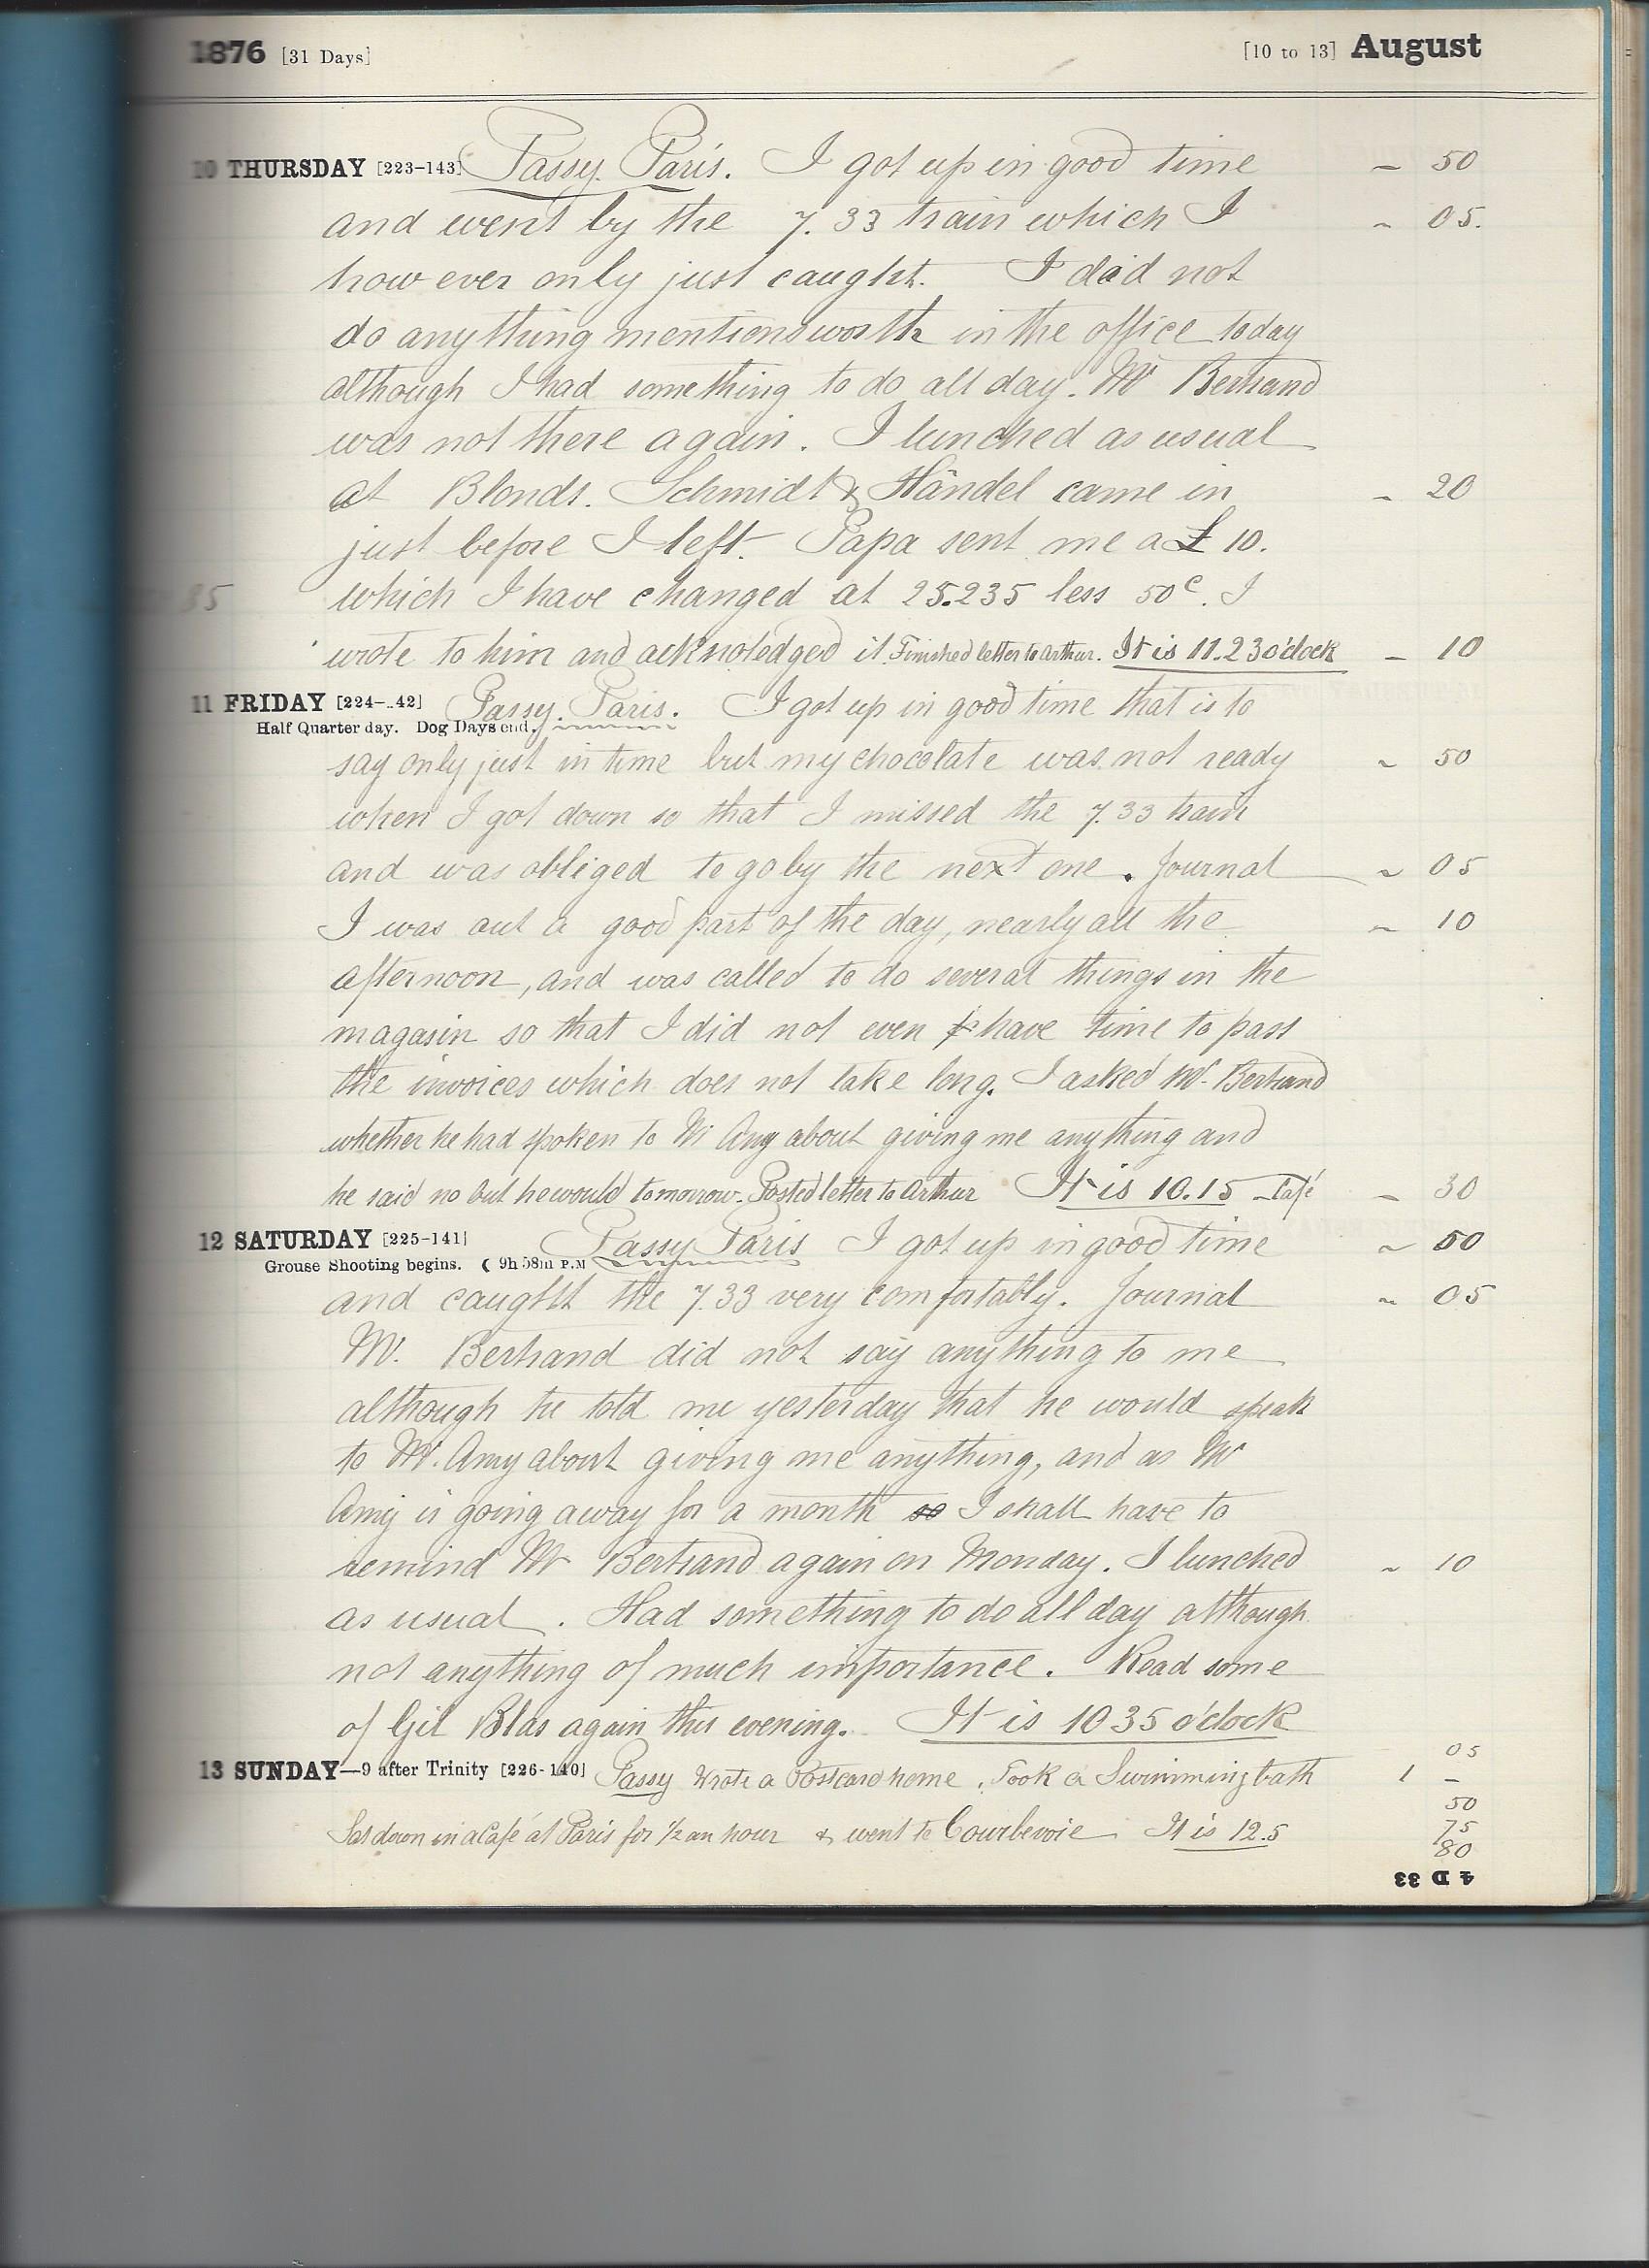 1876 [31 Days] [10 to 13] August
10 THURSDAY [223-143] Passy. Paris. I got up in good time – 50
and went by the 7.33 train which I ~ 05.
how ever only just caught. I did not
do anything mentionsworth in the office today
although I had something to do all day. Mr Bertrand
was not there again. I lunched as usual
at Blonds. Schmidt & Händel came in – 20
just before I left. Papa sent me a £ 10.
which I have changed at 25.235 less 50c. I
wrote to him and acknoledged it. Finished letter to Arthur. It is 11.23 o'clock – 10
11 FRIDAY [224-.42] Passy. Paris. I got up in good time that is to
Half Quarter day. Dog Days end.
say only just in time but my chocolate was not ready ~ 50
when I got down so that I missed the 7.33 train
and was obliged to go by the next one. Journal ~ 05
I was out a good part of the day, nearly all the ~ 10
afternoon, and was called to do several things in the
magasin so that I did not even have time to pass
the invoices which does not take long. I asked Mr. Bertrand
whether he had spoken to Mr Amy about giving me anything and
he said no but he would tomorrow. Posted letter to Arthur It is 10.15 Café – 30
12 SATURDAY [225-141] Passy Paris I got up in good time ~ 50
Grouse Shooting begins. ☾ 9h 58m P.M
and caught the 7.33 very comfortably. Journal ~ 05
Mr. Bertrand did not say anything to me
although he told me yesterday that he would speak
to Mr. Amy about giving me anything, and as Mr
Amy is going away for a month so I shall have to
remind Mr Bertrand again on Monday. I lunched ~ 10
as usual. Had something to do all day although
not anything of much importance. Read some
of Gil Blas again this evening. It is 10 35 o'clock
05
13 SUNDAY—9 after Trinity [226-140] Passy Wrote a Postcard home. Took a Swimming bath 1 –
50
Sat down in a Café at Paris for 1/2 an hour & went to Courbevoie It is 12.5 75
80
4 D 33